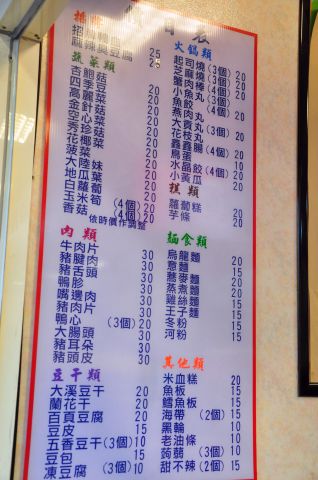 價目表
招牌
麻辣臭豆腐 25
蔬菜類 25
杏鮑菇
四季豆 20
高麗菜 20
金針菇 20
空心菜 20
秀珍菇 20
花椰菜 20
菠菜 20
大陸妹 20
地瓜葉 20
白蘿蔔 20
玉米筍 (4個) 20
香菇 (4個) 20
依時價作調整
肉類
牛肉片 30
豬腱肉 30
豬舌頭 30
鴨胗 30
嘴邊肉 30
豬肉片 30
鴨心 (3個) 20
大腸頭 30
豬耳朵 30
豬頭皮 30
豆干類
大溪豆干 20
蘭花干 20
百頁豆腐 20
豆皮 15
五香豆干 (3個) 10
豆包 15
凍豆腐 (3個) 10
火鍋類
起司燒 (3個) 20
芝麻棒 (3個) 20
蟹肉棒 (4個) 20
小魚丸 (3個)
魚餃 (4個) 20
燕肉丸 20
大貢丸 (3個) 20
花枝丸 (3個) 20
鑫鑫腸 (4個) 20
鳥蛋 10
水晶餃 (4個) 20
小黃瓜 20
粿類
蘿蔔糕 20
芋條 20
麵食類
烏龍麵 20
意麵 15
蕎麥麵 20
蒸煮麵 20
雞絲麵 15
王子麵 15
冬粉 15
河粉 15
其他類
米血糕 20
魚板 15
鱈魚板 15
海帶 (2個) 15
黑輪 10
老油條 10
蒟蒻 (3個) 15
甜不辣 (2個) 15